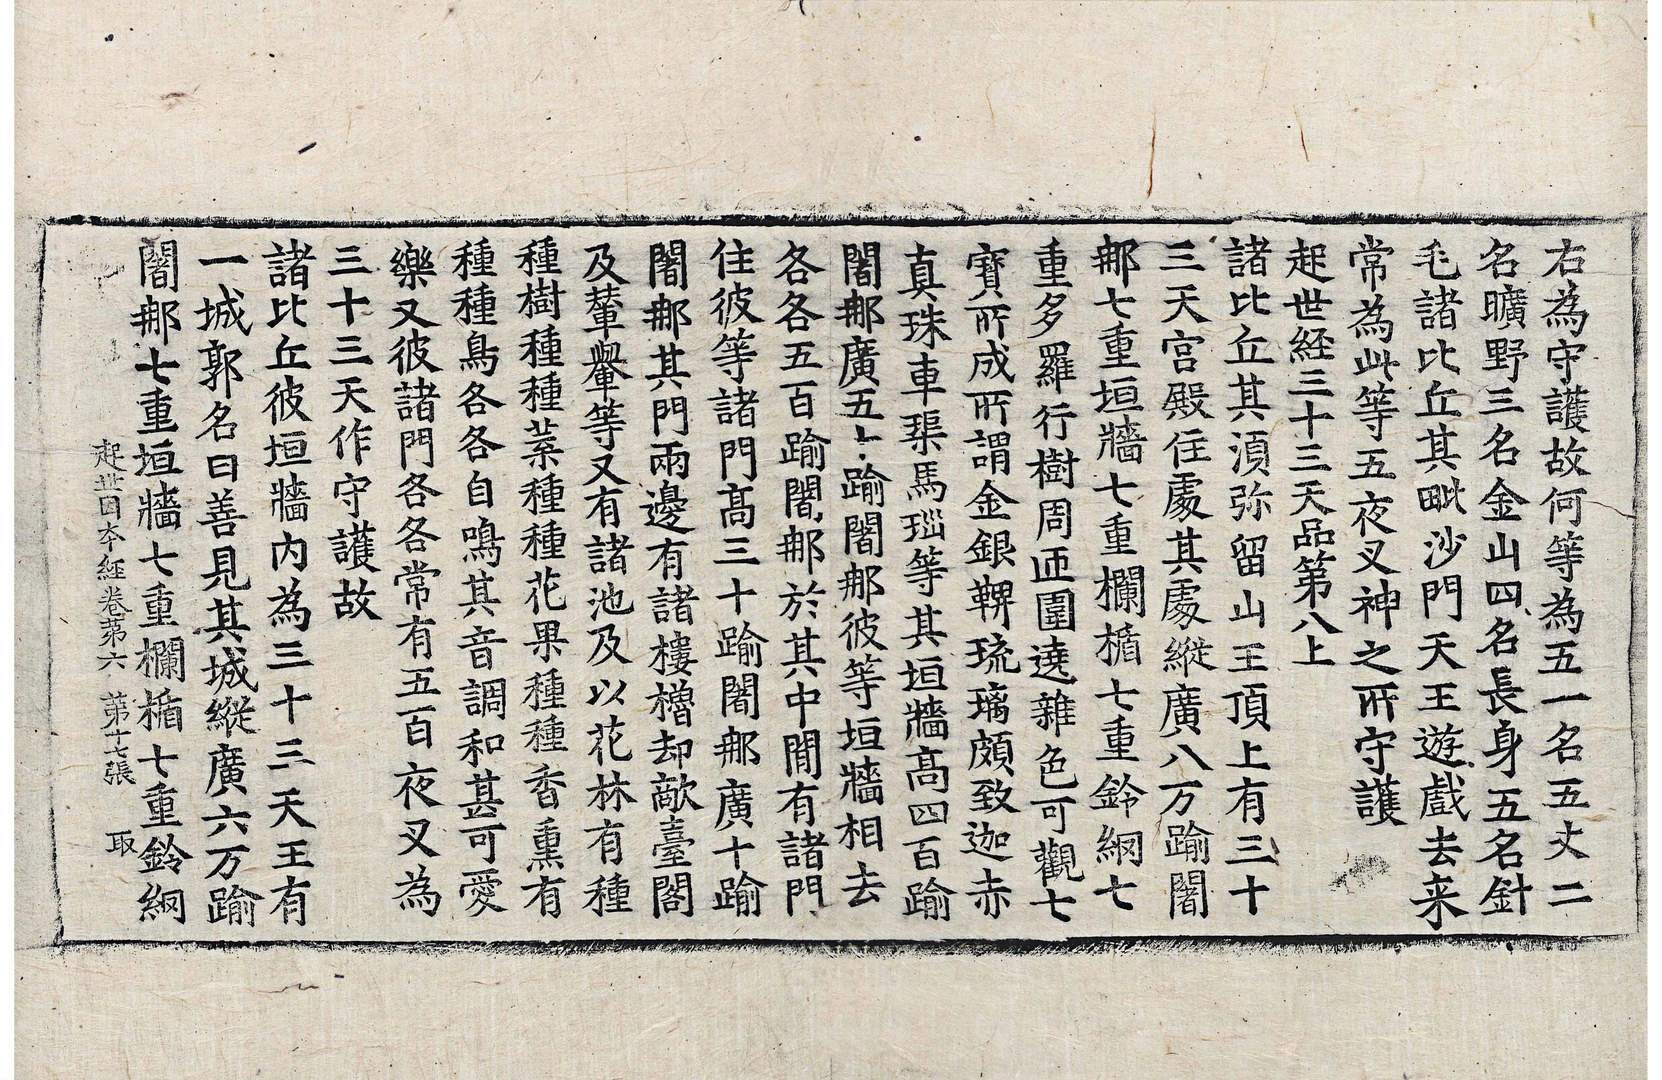 右為守護故何等為五一名五丈二
名曠野三名金山四名長身五名針
毛諸比丘其毗沙門天王遊戲去来
常為此等五夜叉神之所守護
起世経三十三天品第八上
諸比丘其湏弥留山王頂上有三十
三天宮殿住處其處縱廣八万踰闍
那七重垣牆七重欄楯七重鈴網七
重多羅行樹周匝圍遶雜色可觀七
寶所成所謂金銀鞞琉璃頗致迦赤
真珠車璖馬瑙等其垣牆高四百踰
闍那廣五十踰闍那彼等垣牆相去
各各五百踰闍那於其中間有諸門
住彼等諸門高三十踰闍那廣十踰
闍那其門兩邊有諸樓櫓却敵臺閣
及輦轝等又有諸池及以花林有種
種樹種種葉種種花果種種香熏有
種種鳥各各自鳴其音調和甚可愛
樂又彼諸門各各常有五百夜叉為
三十三天作守護故
諸比丘彼垣牆內為三十三天王有
一城郭名曰善見其城縱廣六万踰
闍那七重垣牆七重欄楯七重鈴網
起世因本經卷第六 第十七張 取